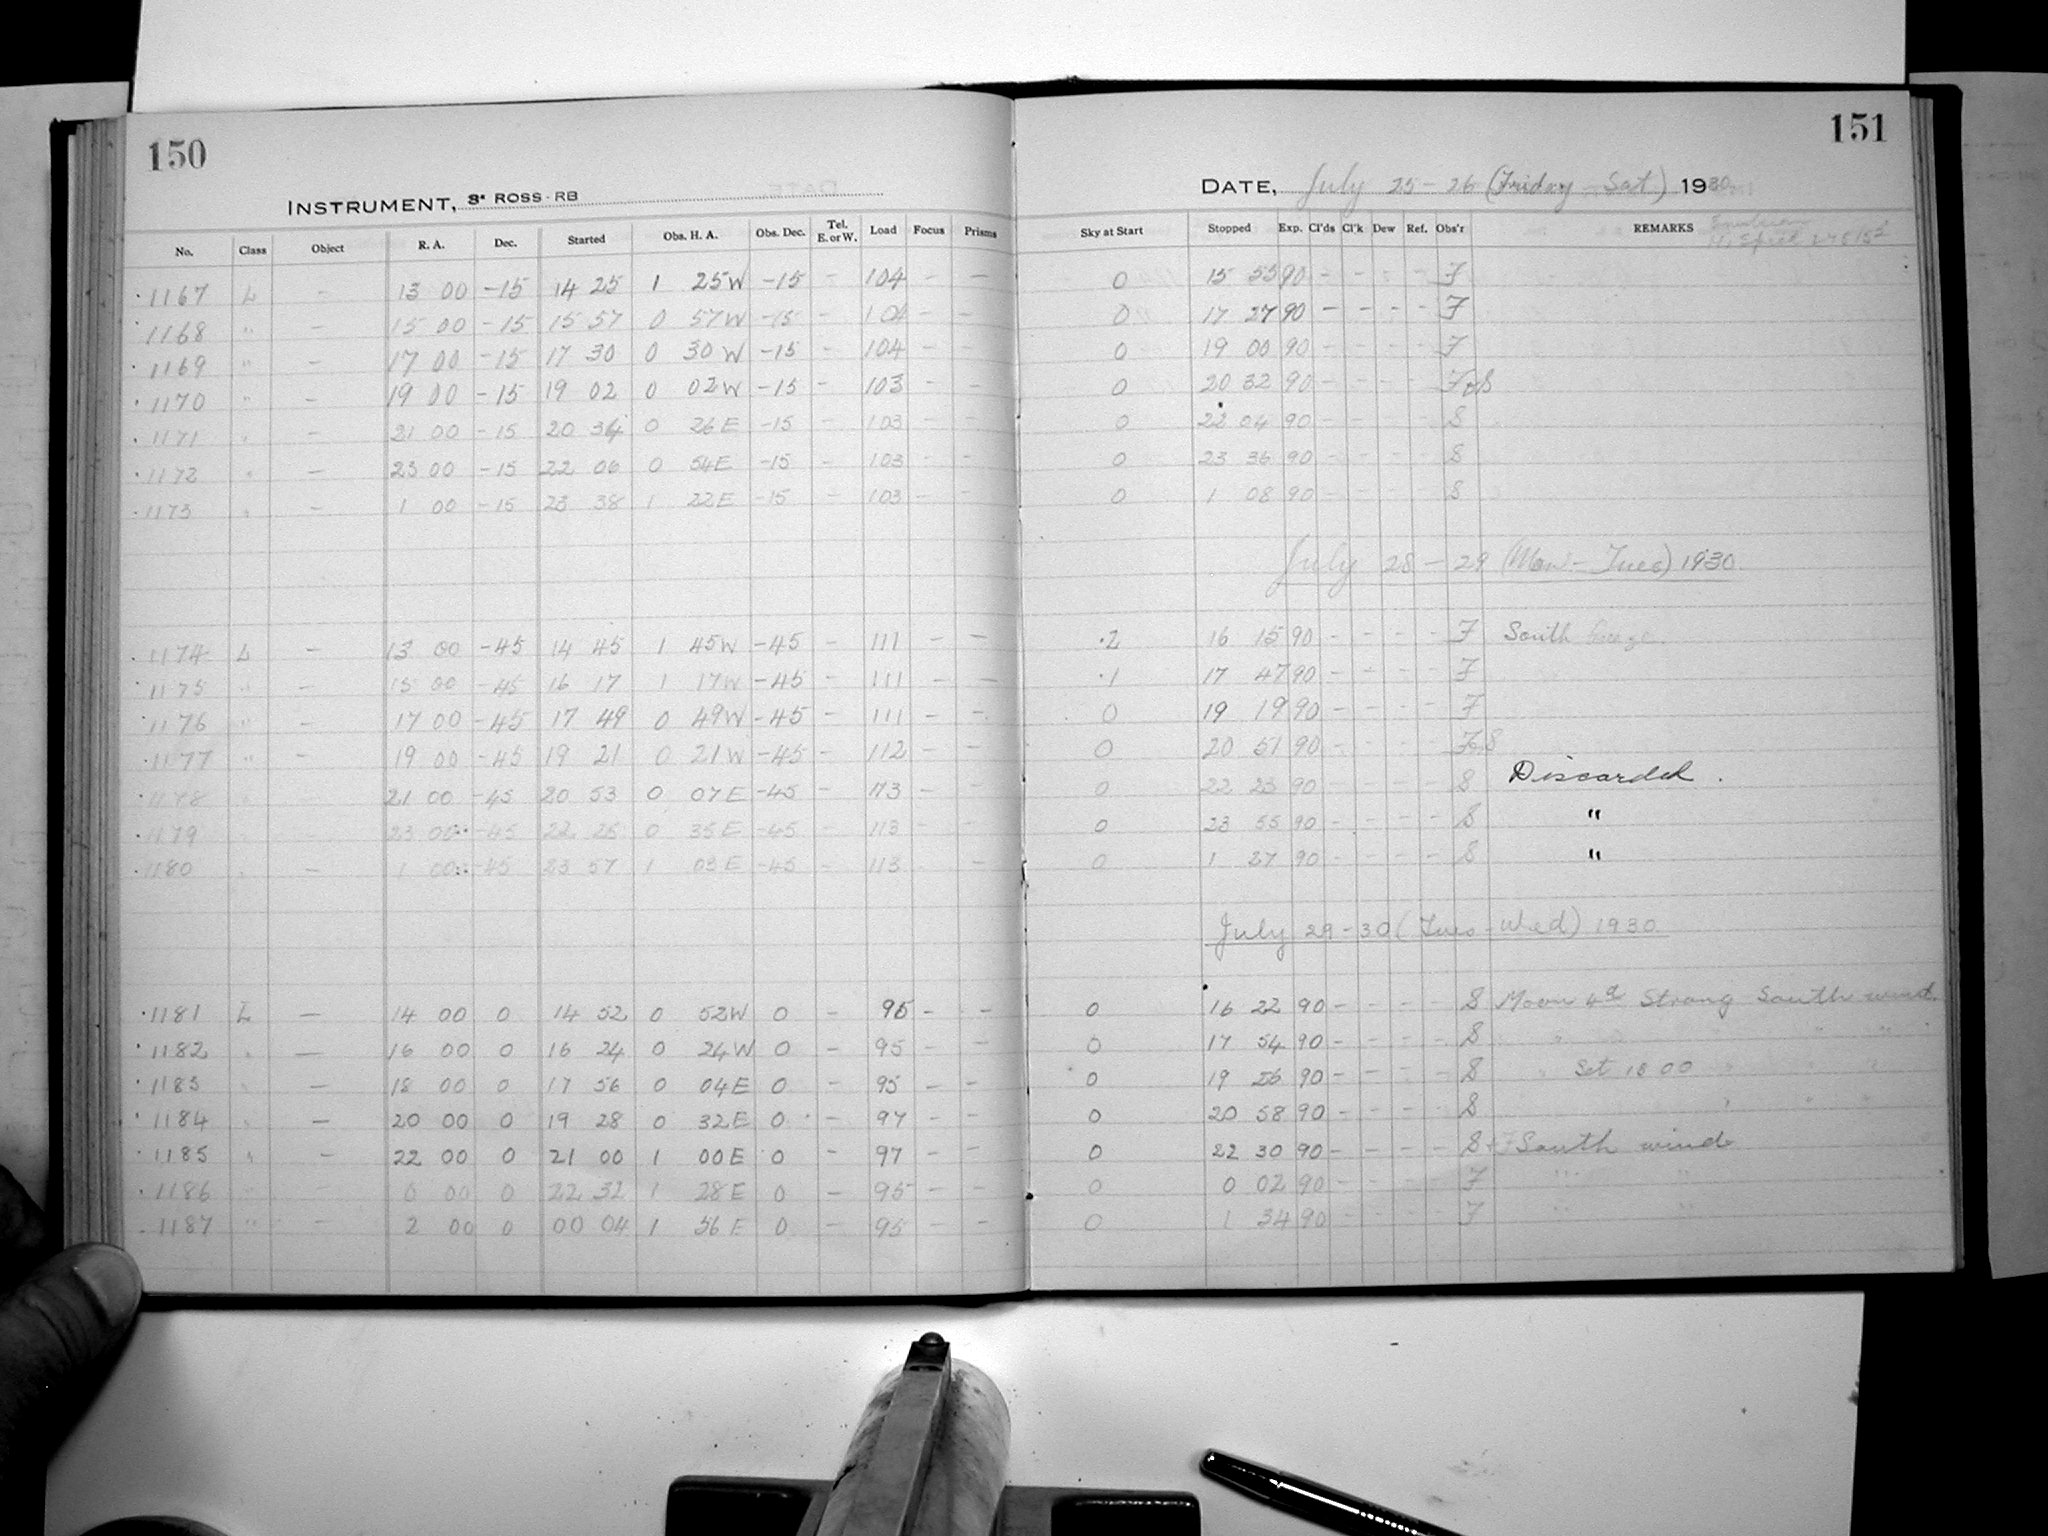 150
INSTRUMENT, 3" ROSS-RB
No. Class Object R. A. Dec. Started Obs. H. A. Obs. Dec. Tel. E. or W. Load Focus Prisms
1167 L — 13 00 -15 14 25 1 25W -15 - 104 - -
1168 " — 15 00 -15 15 57 0 57W -15 - 104 - -
1169 " — 17 00 -15 17 30 0 30W -15 - 104 - -
1170 " — 19 00 -15 19 02 0 02W -15 - 103 - -
1171 " — 21 00 -15 20 34 0 26E -15 - 103 - -
1172 " — 23 00 -15 22 06 0 54E -15 - 103 - -
1173 " — 1 00 -15 23 38 1 22E -15 - 103 - -
1174 L — 13 00 -45 14 45 1 45W -45 - 111 - -
1175 " — 15 00 -45 16 17 1 17W -45 - 111 - -
1176 " — 17 00 -45 17 49 0 49W -45 - 111 - -
1177 " — 19 00 -45 19 21 0 21W -45 - 112 - -
1178 " 21 00 -45 20 53 0 07E -45 - 113 - -
1179 " 23 00 -45 22 25 0 35E -45 - 113 - -
1180 " — 1 00 -45 23 57 1 03E -45 - 113 -
1181 L — 14 00 0 14 52 0 52W 0 - 95 - -
1182 " — 16 00 0 16 24 0 24W 0 - 95 - -
1183 " — 18 00 0 17 56 0 04E 0 - 95 - -
1184 " — 20 00 0 19 28 0 32E 0 - 97 - -
1185 " — 22 00 0 21 00 1 00E 0 - 97 - -
1186 " — 0 00 0 22 32 1 28E 0 - 95 - -
1187 " — 2 00 0 00 04 1 56E 0 - 95 - -
151
DATE, July 25-26 (Friday-Sat) 1930
Sky at Start Stopped Exp. Cl'ds Cl'k Dew Ref. Obs'r REMARKS
0 15 55 90 - - - - F
0 17 27 90 - - - - F
0 19 00 90 - - - - F
0 20 32 90 - - - - F+S
0 22 04 90 - - - - S
0 23 36 90 - - - - S
0 1 08 90 - - - - S
July 28-29 (Mon-Tues) 1930
.2 16 15 90 - - - - F South
.1 17 47 90 - - - - F
0 19 19 90 - - - - F
0 20 51 90 - - - - F+S
0 22 23 90 - - - - S Discarded.
0 23 55 90 - - - - S "
0 1 27 90 - - - - S "
July 29-30 (Tues-Wed) 1930
0 16 22 90 - - - - S Moon 4d Strong South wind.
0 17 54 90 - - - - S " " "
0 19 26 90 - - - - S " Set 18 00 " "
0 20 58 90 - - - - S " " "
0 22 30 90 - - - - S+F South wind
0 0 02 90 - - - - F " "
0 1 34 90 - - - - F " "